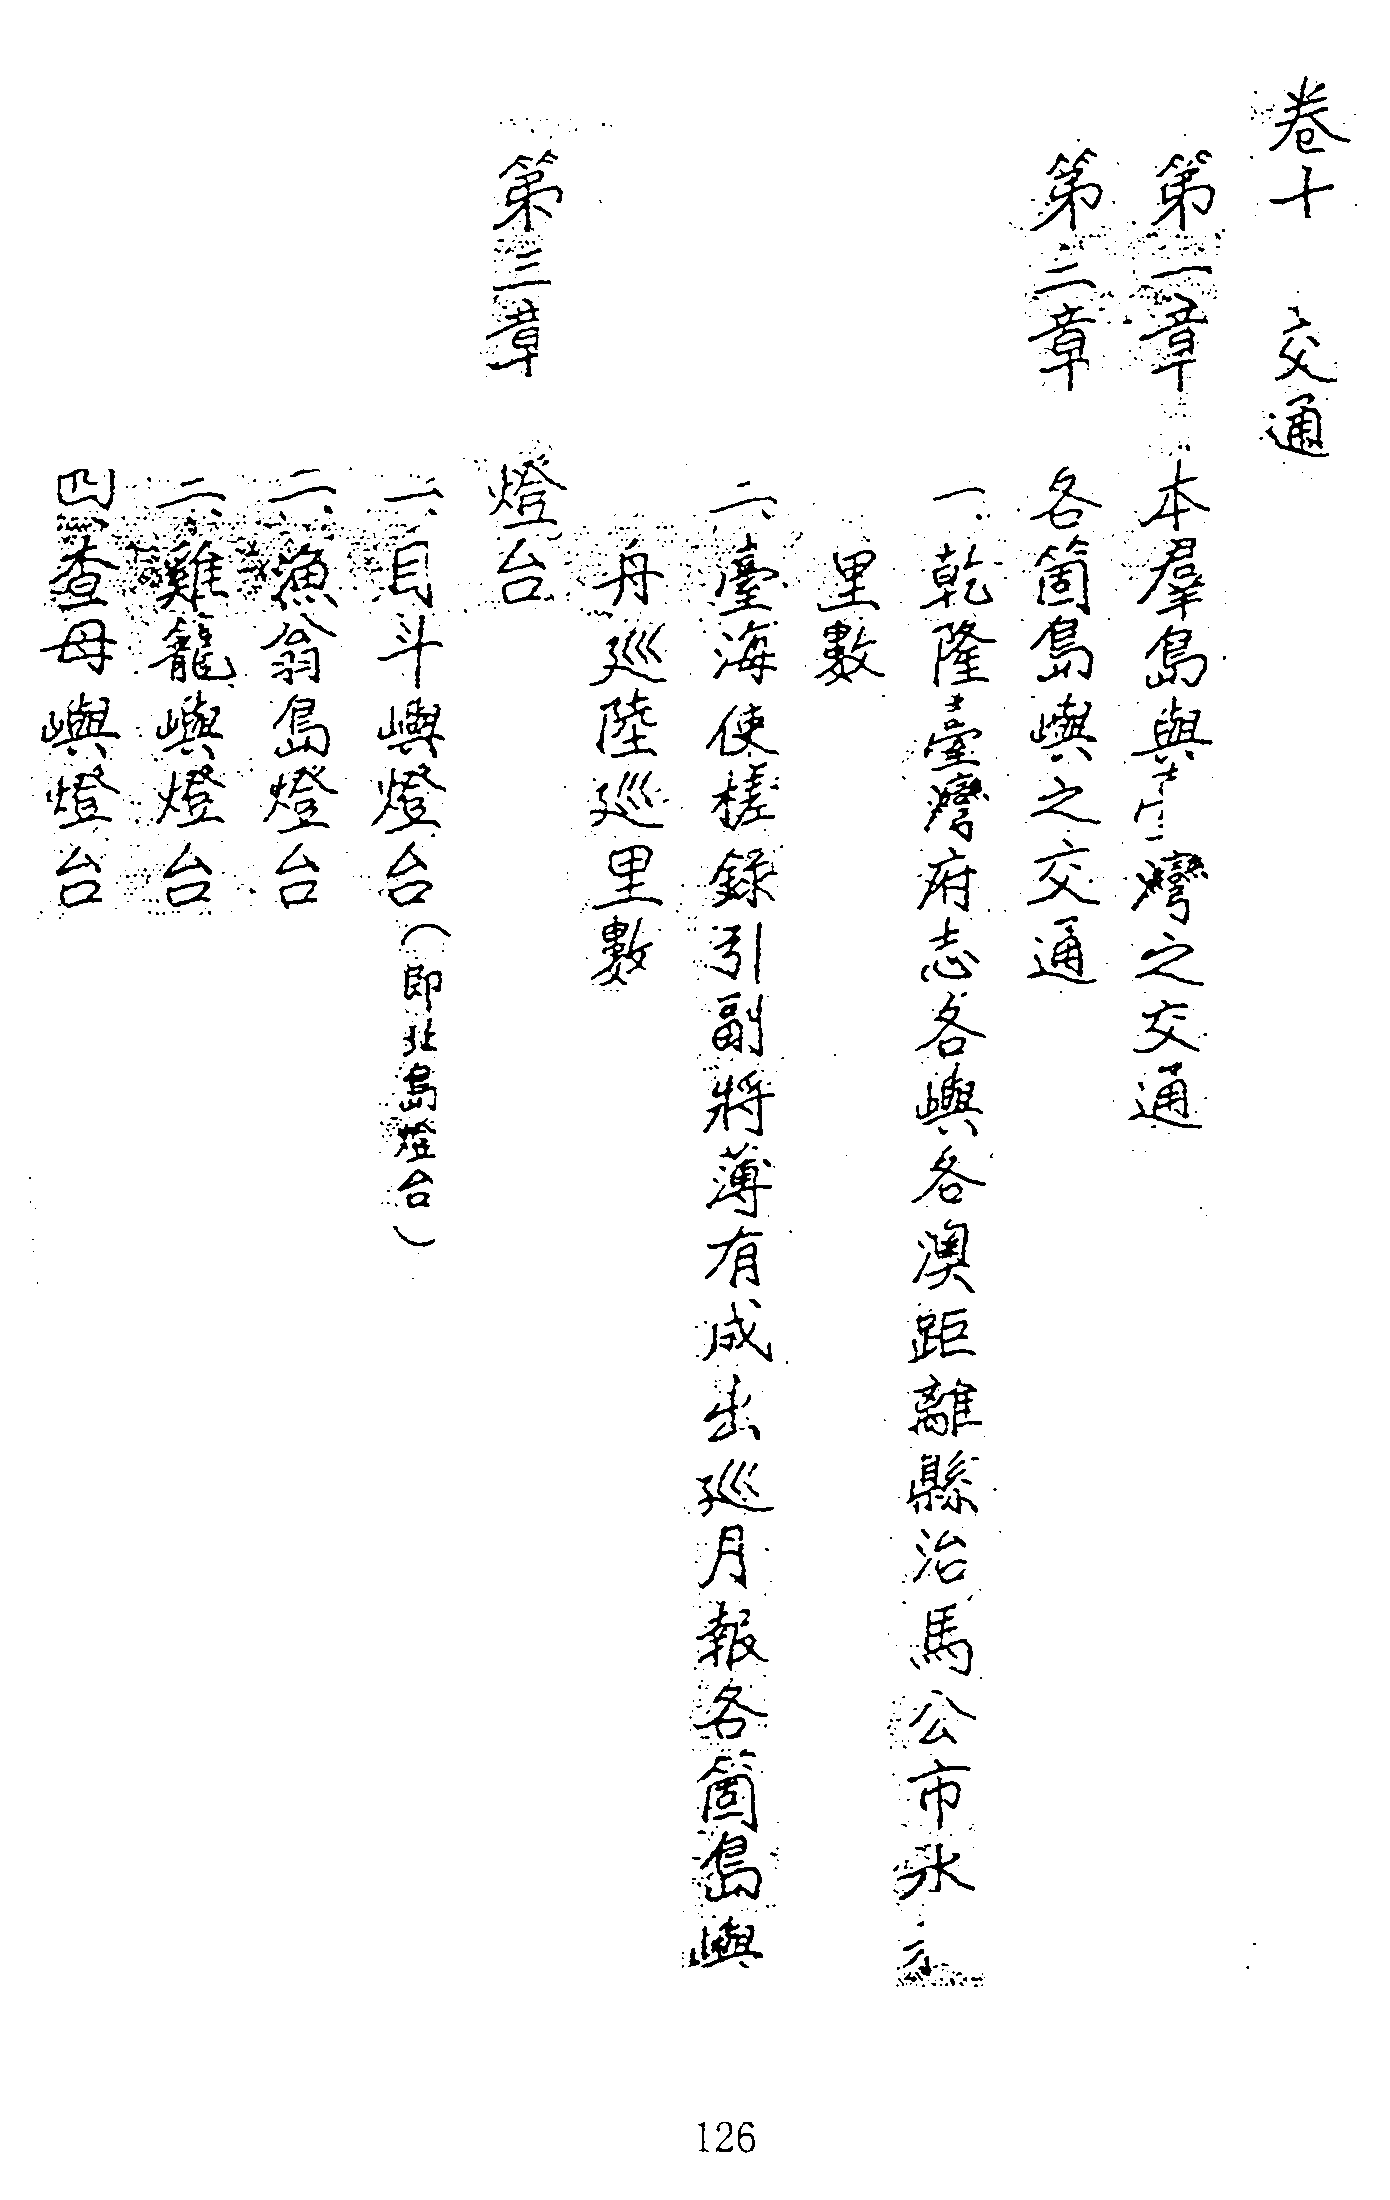 卷十　交通
第一章　本羣島與臺灣之交通
第二章　各箇島嶼之交通
一、乾隆臺灣府志各嶼各澳距離縣治馬公市水
里數
二、臺海使槎錄引副將薄有成出巡月報各箇島嶼
舟巡陸巡里數
第三章　燈台
一、目斗嶼燈台（即北島燈台）
二、漁翁島燈台
三、雞籠嶼燈台
四、查母嶼燈台
126